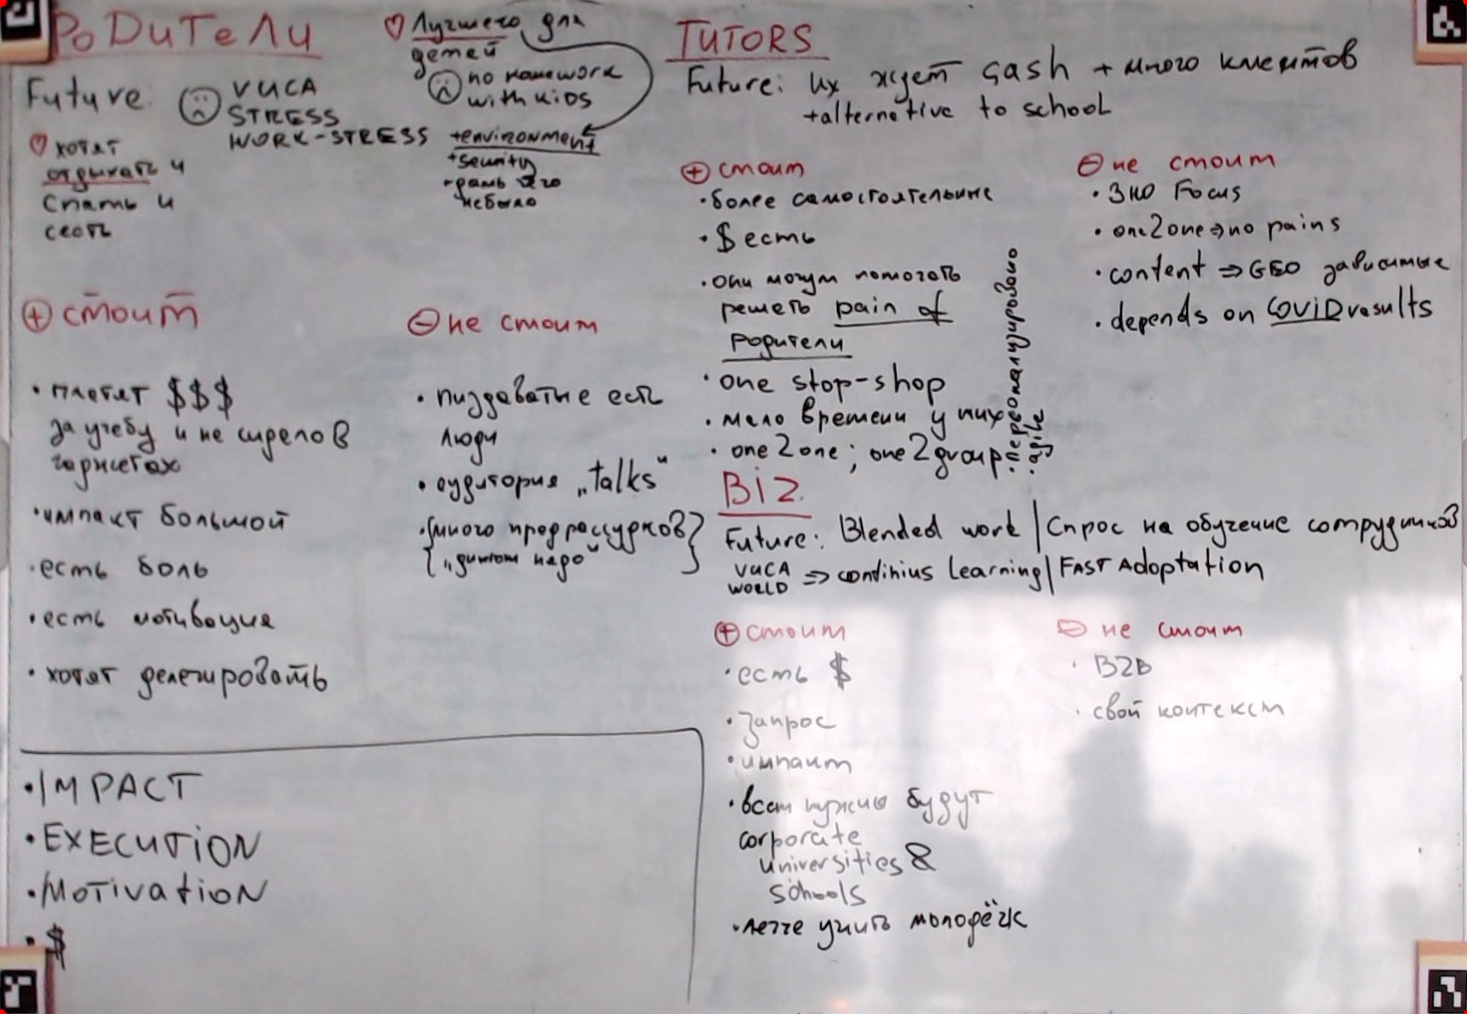 РОДИТЕЛИ
Future ☹ VUCA
STRESS
WORK-STRESS
♡ хотят
отдыхать и
спать и
сесть
♡ Лучшего для
детей
☹ no homework
with kids
+environment
+security
небыло
⊕ стоит
• платят $$$
за учебу и не сидело в
гаджетах
• импакт большой
• есть боль
• есть мотивация
• хотят делегировать
⊖ не стоит
• пиздаватые есть
люди
• аудитория „talks“
• {много предрассудков}
{„диплом надо“}
• IMPACT
• EXECUTION
• MOTIVATION
• $
TUTORS
Future: их ждет cash + много клиентов
+alternative to school
⊕ стоит
• более самостоятельные
• $ есть
• они могут помогать
решать pain of
родители
• one stop-shop
• мало времени у них
• one2one; one2group
• персонализировано
• agile
⊖ не стоит
• ЗНО Focus
• one2one⇒no pains
• content ⇒ GEO зависимые
• depends on COVID results
BIZ.
Future: Blended work | Спрос на обучение сотрудников
VUCA
WORLD ⇒ continius learning | FAST Adoptation
⊕ стоит
• есть $
• запрос
• импакт
• всем нужно будут
corporate
universities &
schools
• легче учить молодёж
⊖ не стоит
• B2B
• свой контекст